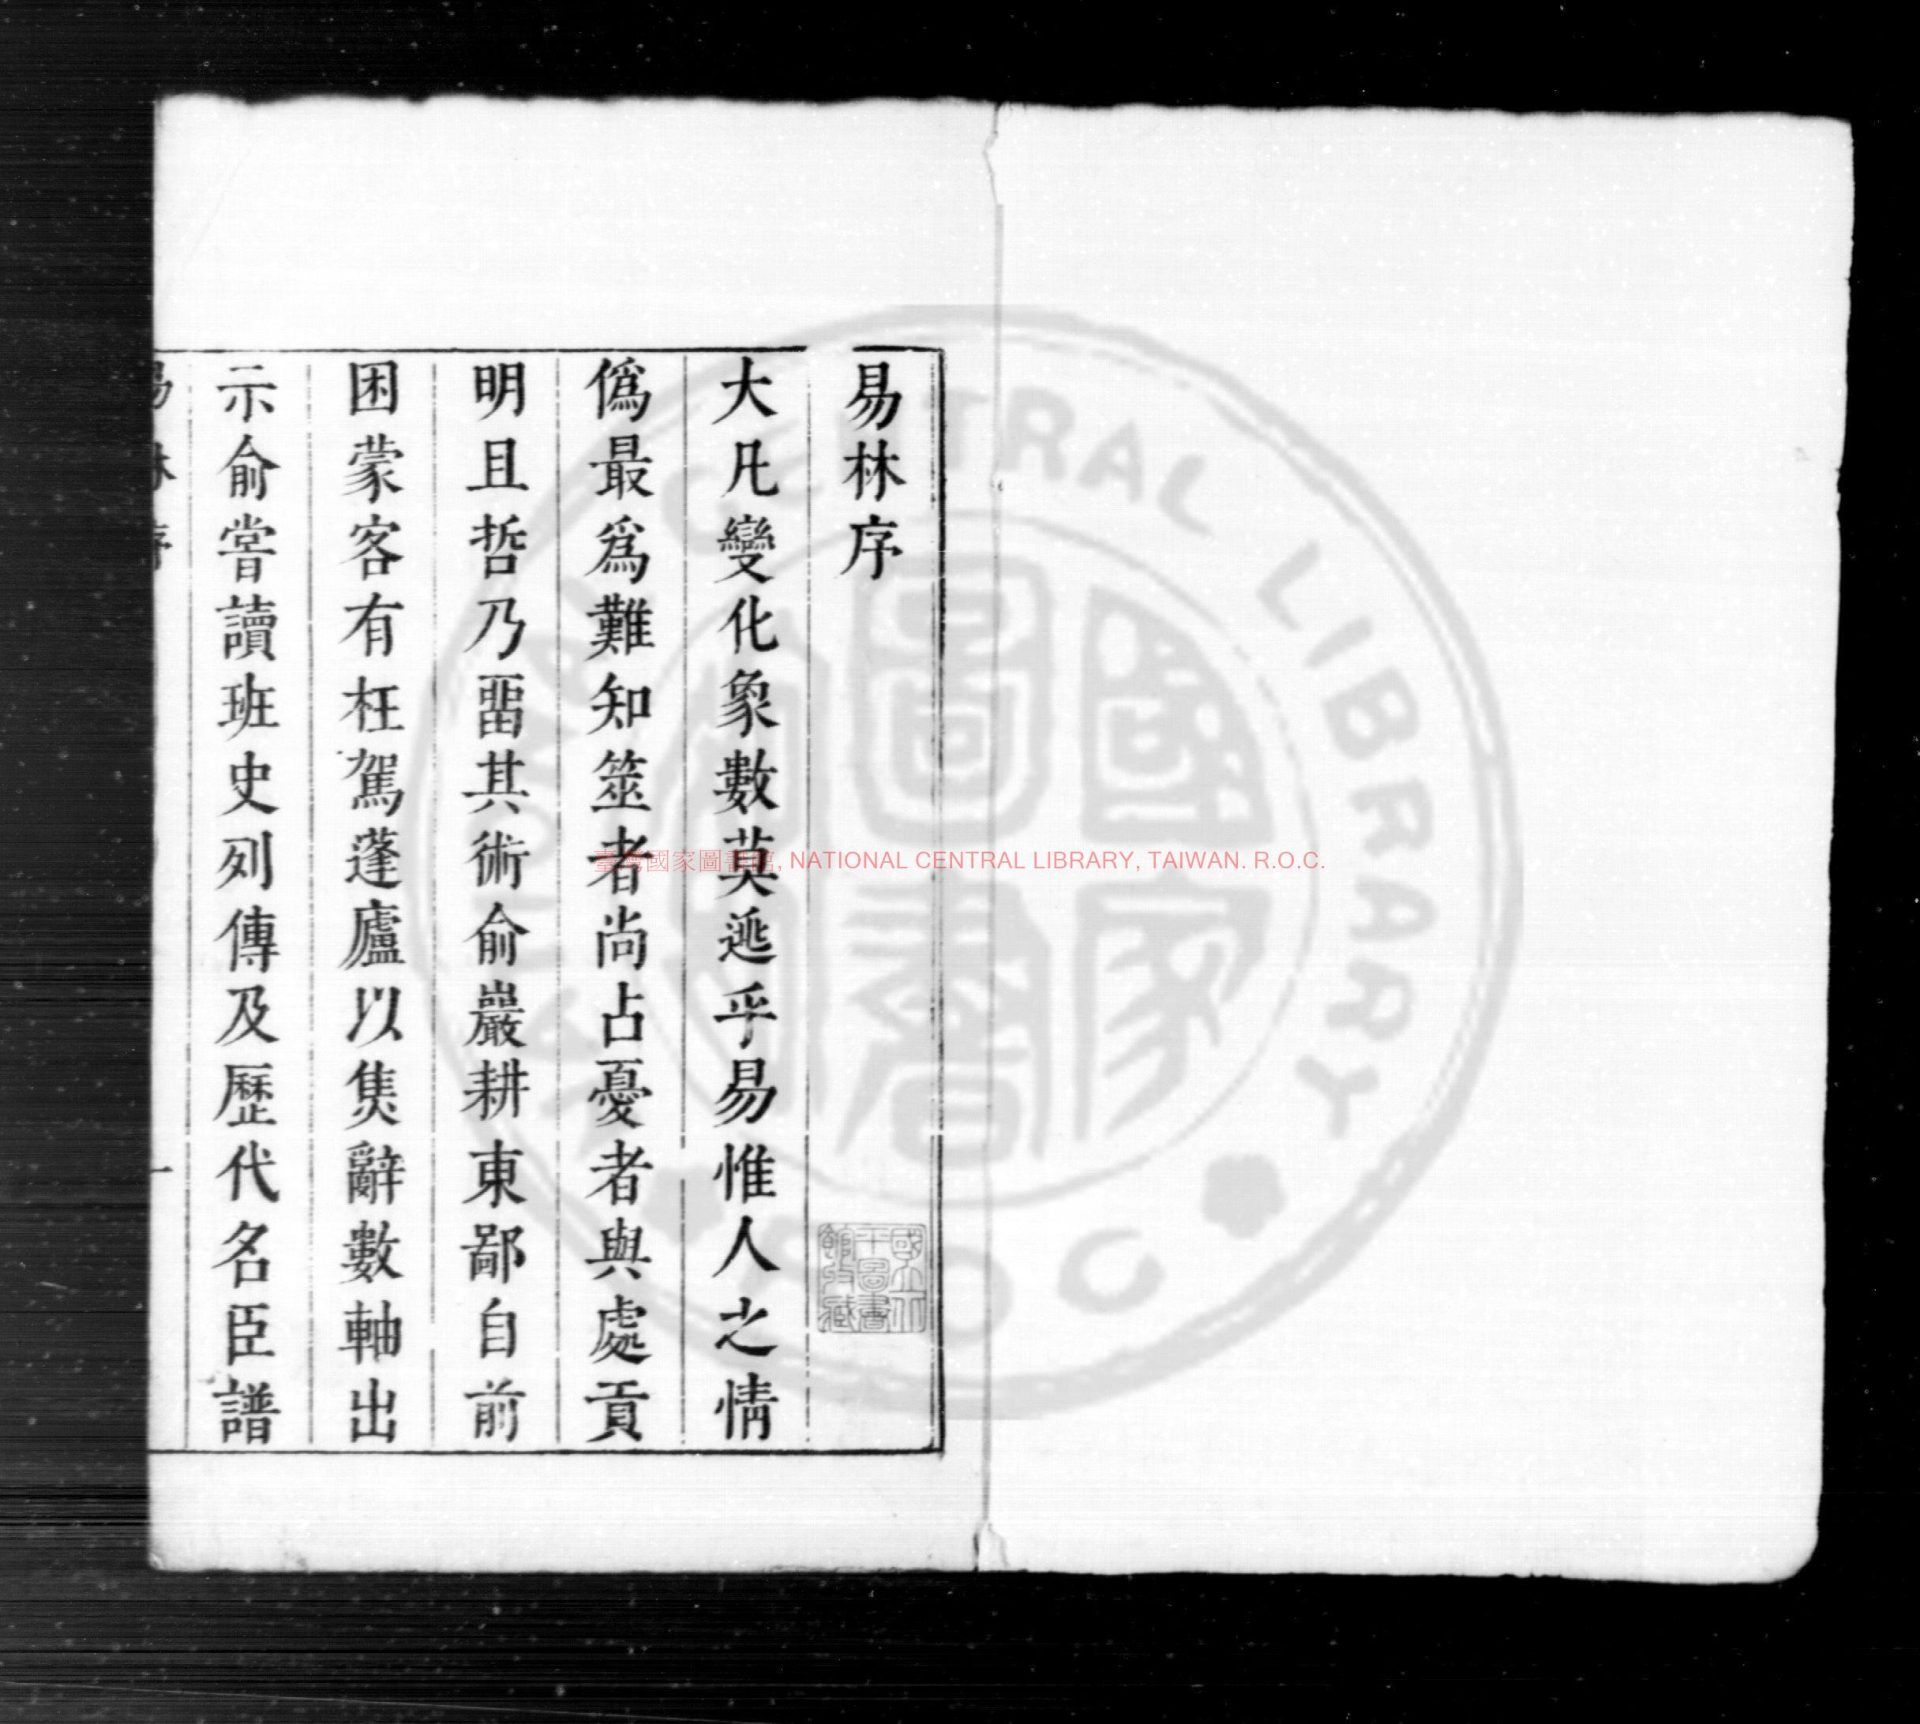 易林序
大凡變化象數莫逃乎易惟人之情
僞最爲難知筮者尚占憂者與處貢
明且哲乃畱其術俞巖耕東鄙自前
困蒙客有枉駕蓬廬以焦辭數軸出
示俞嘗讀班史列傳及歷代名臣譜
易林序 一
國立中央圖書館收藏
臺灣國家圖書館, NATIONAL CENTRAL LIBRARY, TAIWAN. R.O.C.
NATIONAL CENTRAL LIBRARY
R.O.C.
國家圖書館